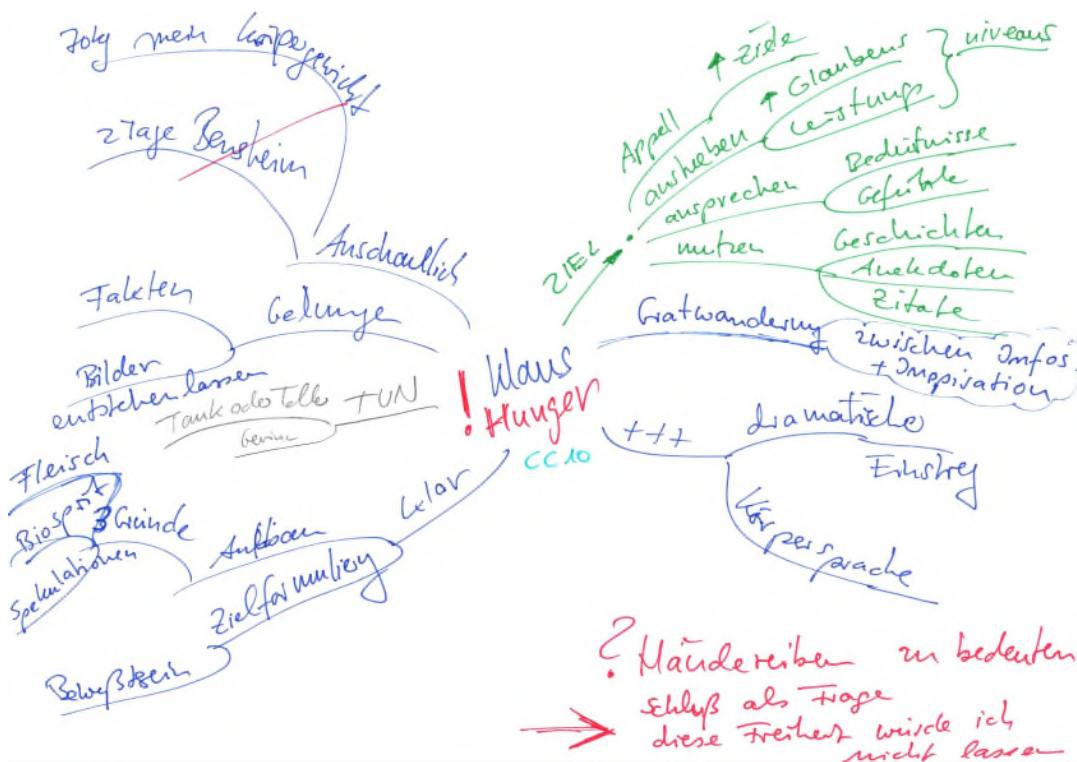 70kg mein Körpergewicht
2 Tage Bensheim
Anschaulich
Fakten
Gelungen
Bilder
entstehen lassen
Tank oder Teller TUN
Fleisch
Biosprit
3 Gründe
Spekulationen
Aufbau
Klar
Zielformulierg
Bewußtsein
! Klaus
Hunger
CC10
ZIEL
Appell
↑ Ziele
anheben
↑ Glaubens
Leistungs
niveaus
ansprechen
Bedürfnisse
Gefühle
nutzen
Geschichten
Anekdoten
Zitate
Gratwanderung
zwischen Infos
+ Inspiration
+++
dramatische
Einstieg
Körpersprache
? Händereiben zu bedeuten
Schluß als Frage
diese Freiheit würde ich
nicht lassen